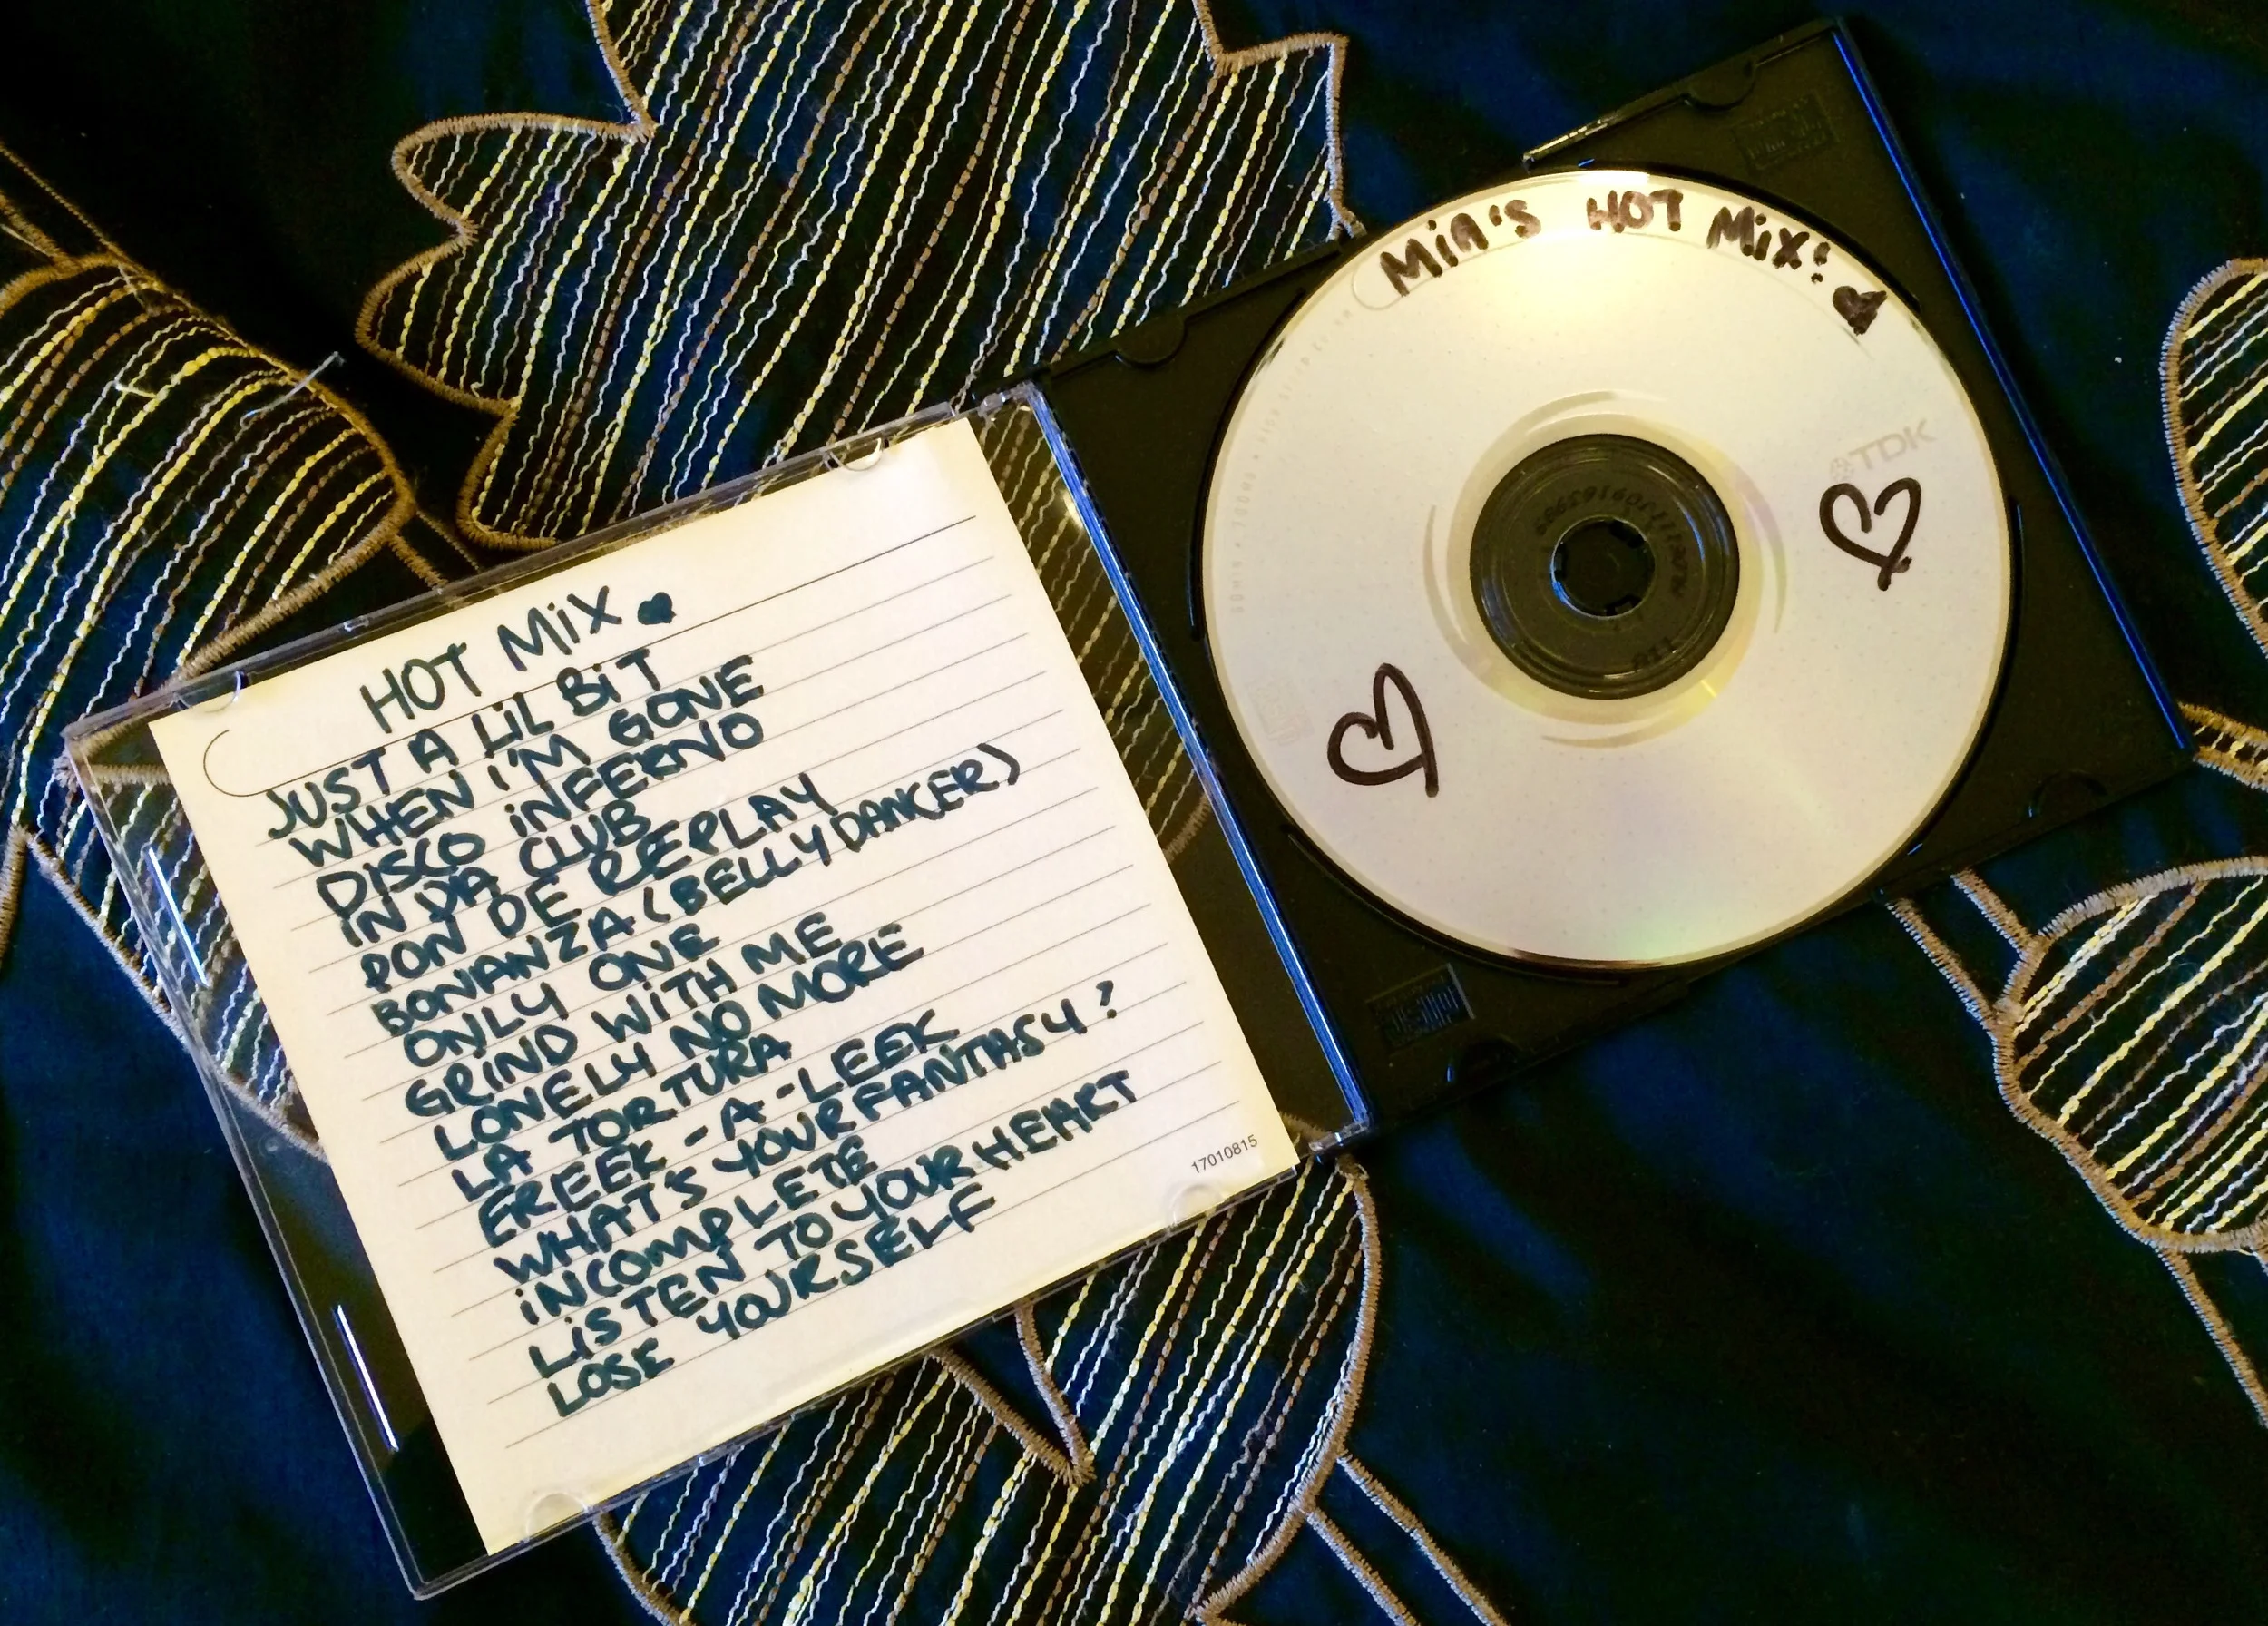 HOT MiX
JUST A LiL BiT
WHEN i'M GONE
DISCO iNFERNO
IN DA CLUB
PON DE REPLAY
BONANZA (BELLY DANCER)
ONLY ONE
GRIND WiTH ME
LONELY NO MORE
LA TORTURA
FREEK-A-LEEK
WHAT'S YOUR FANTASY?
iNCOMPLETE
LiSTEN TO YOUR HEART
LOSE YOURSELF
17010815
MiA'S HOT MiX!
TDK